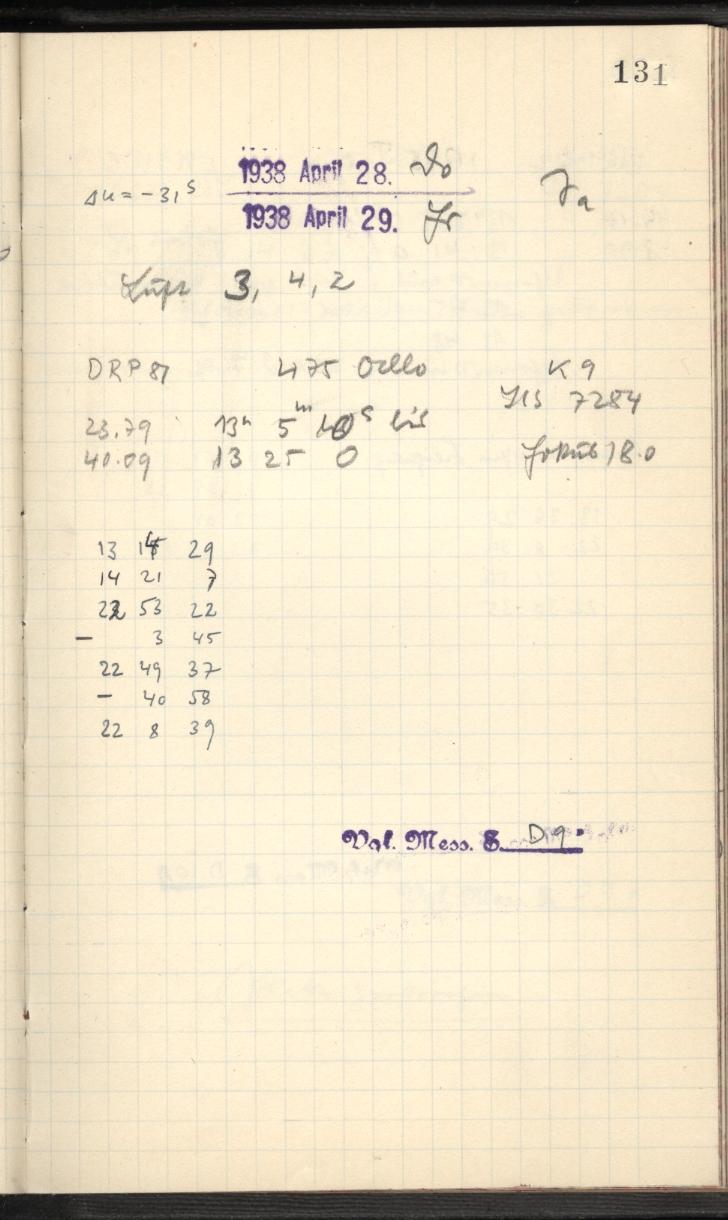 131
1938 April 28. Do
Δu = -31s Ja
1938 April 29. Fr
Luft 3, 4, 2
DRP 87 475 Ocllo K 9
23.79 13h 5m 10s bis 7284
40.09 13 25 0 18.0
13 14 29
14 21 7
22 53 22
- 3 45
22 49 37
- 40 58
22 8 39
Vgl. Mess. S. D9